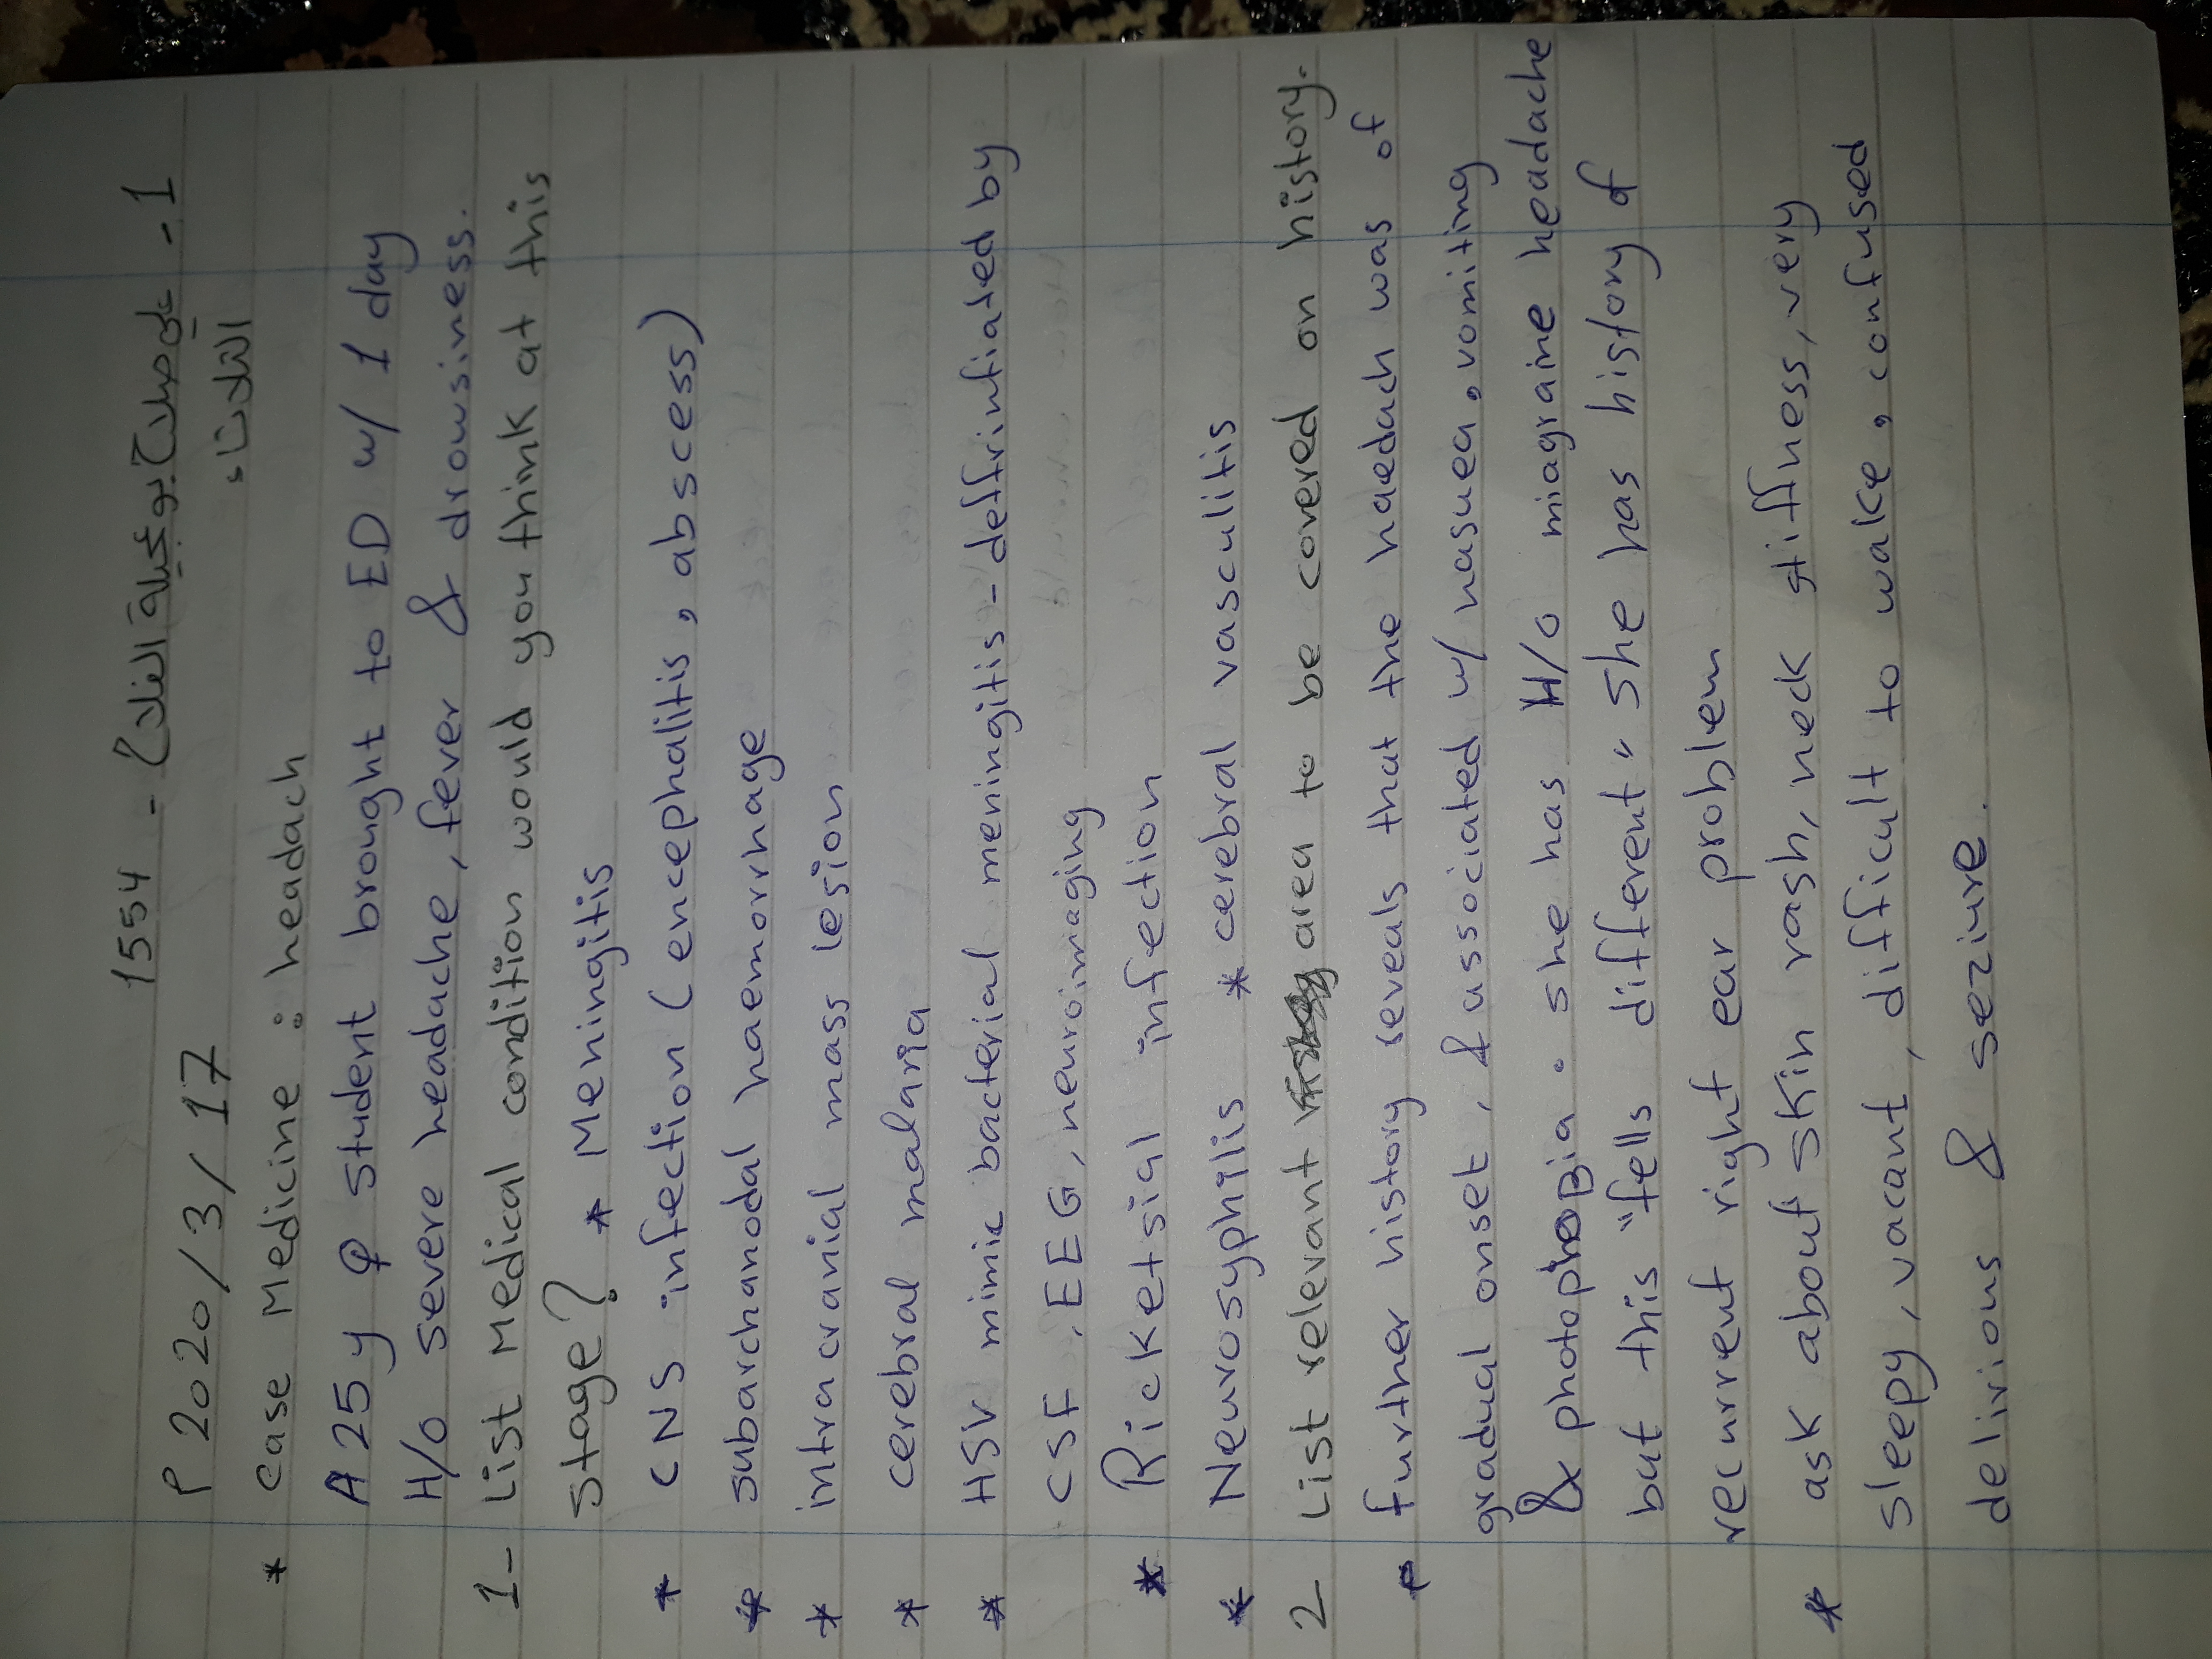 1554 - علي صلاح بو عجيلة الفلاح - 1
م 2020/3/17 الثلاثاء
* case Medicine : headach
A 25 y ♀ student brought to ED w/ 1 day
H/o severe headache, fever & drowsiness.
1- List Medical condition would you think at this
stage? * Meningitis
* CNS infection (encephalitis, abscess)
* subarchanodal haemorrhage
* intracranial mass lesion
* cerebral malaria
* HSV mimic bacterial meningitis - deffrintiated by
CSF, EEG, neuroimaging
* Ricketsial infection
* Neurosyphilis * cerebral vasculitis
2- List relevant area to be covered on history.
* further history reveals that the haedach was of
gradual onset, & associated w/ nasuea, vomiting
& photophoBia. she has H/o miagraine headache
but this "fells different" she has history of
recurrent right ear problem
* ask about skin rash, neck stiffness, very
sleepy, vacant, difficult to wake, confused
delirious & seziure.